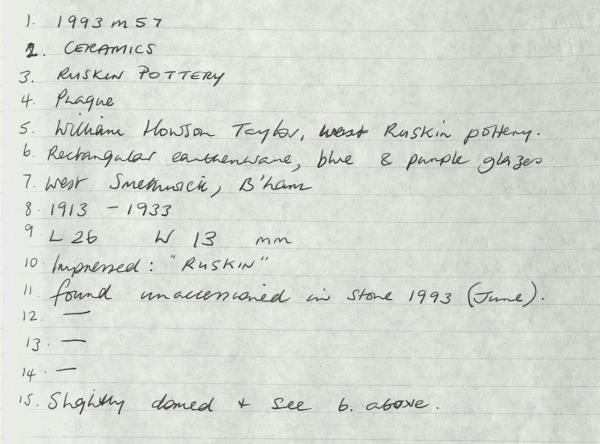 1. 1993 m 57
2. CERAMICS
3. RUSKIN POTTERY
4. Plaque
5. William Howson Taylor, west Ruskin pottery.
6. Rectangular earthenware, blue & purple glazes
7. West Smethwick, B'ham
8. 1913 - 1933
9 L 26 W 13 mm
10. Impressed: "RUSKIN"
11. found unaccessioned in store 1993 (June).
12. —
13. —
14. —
15. Slightly domed + see 6. above.